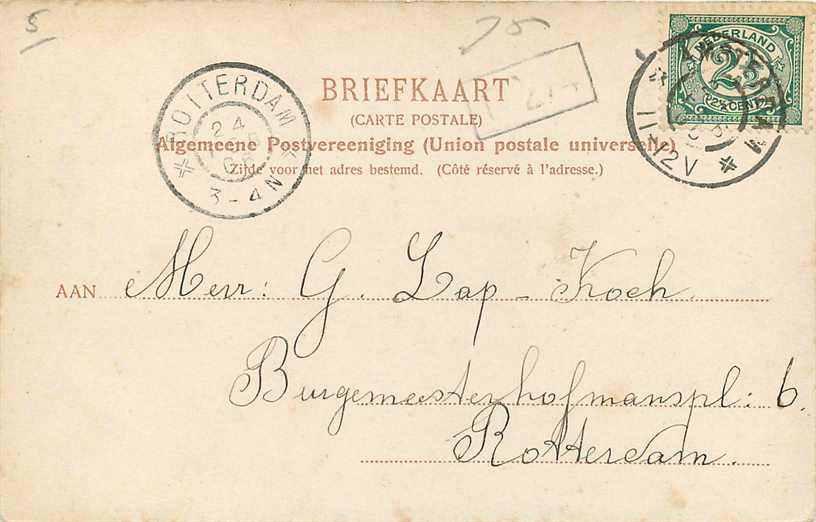 5
75
NEDERLAND
2½
2½ CENT
AMSTERDAM
11-12V
ROTTERDAM
24
3-4N
BRIEFKAART
(CARTE POSTALE)
Algemeene Postvereeniging (Union postale universelle)
Zijde voor het adres bestemd. (Côté réservé à l'adresse.)
AAN Mevr: G. Lap - Koch.
Burgemeesterhofmanspl: 6.
Rotterdam.